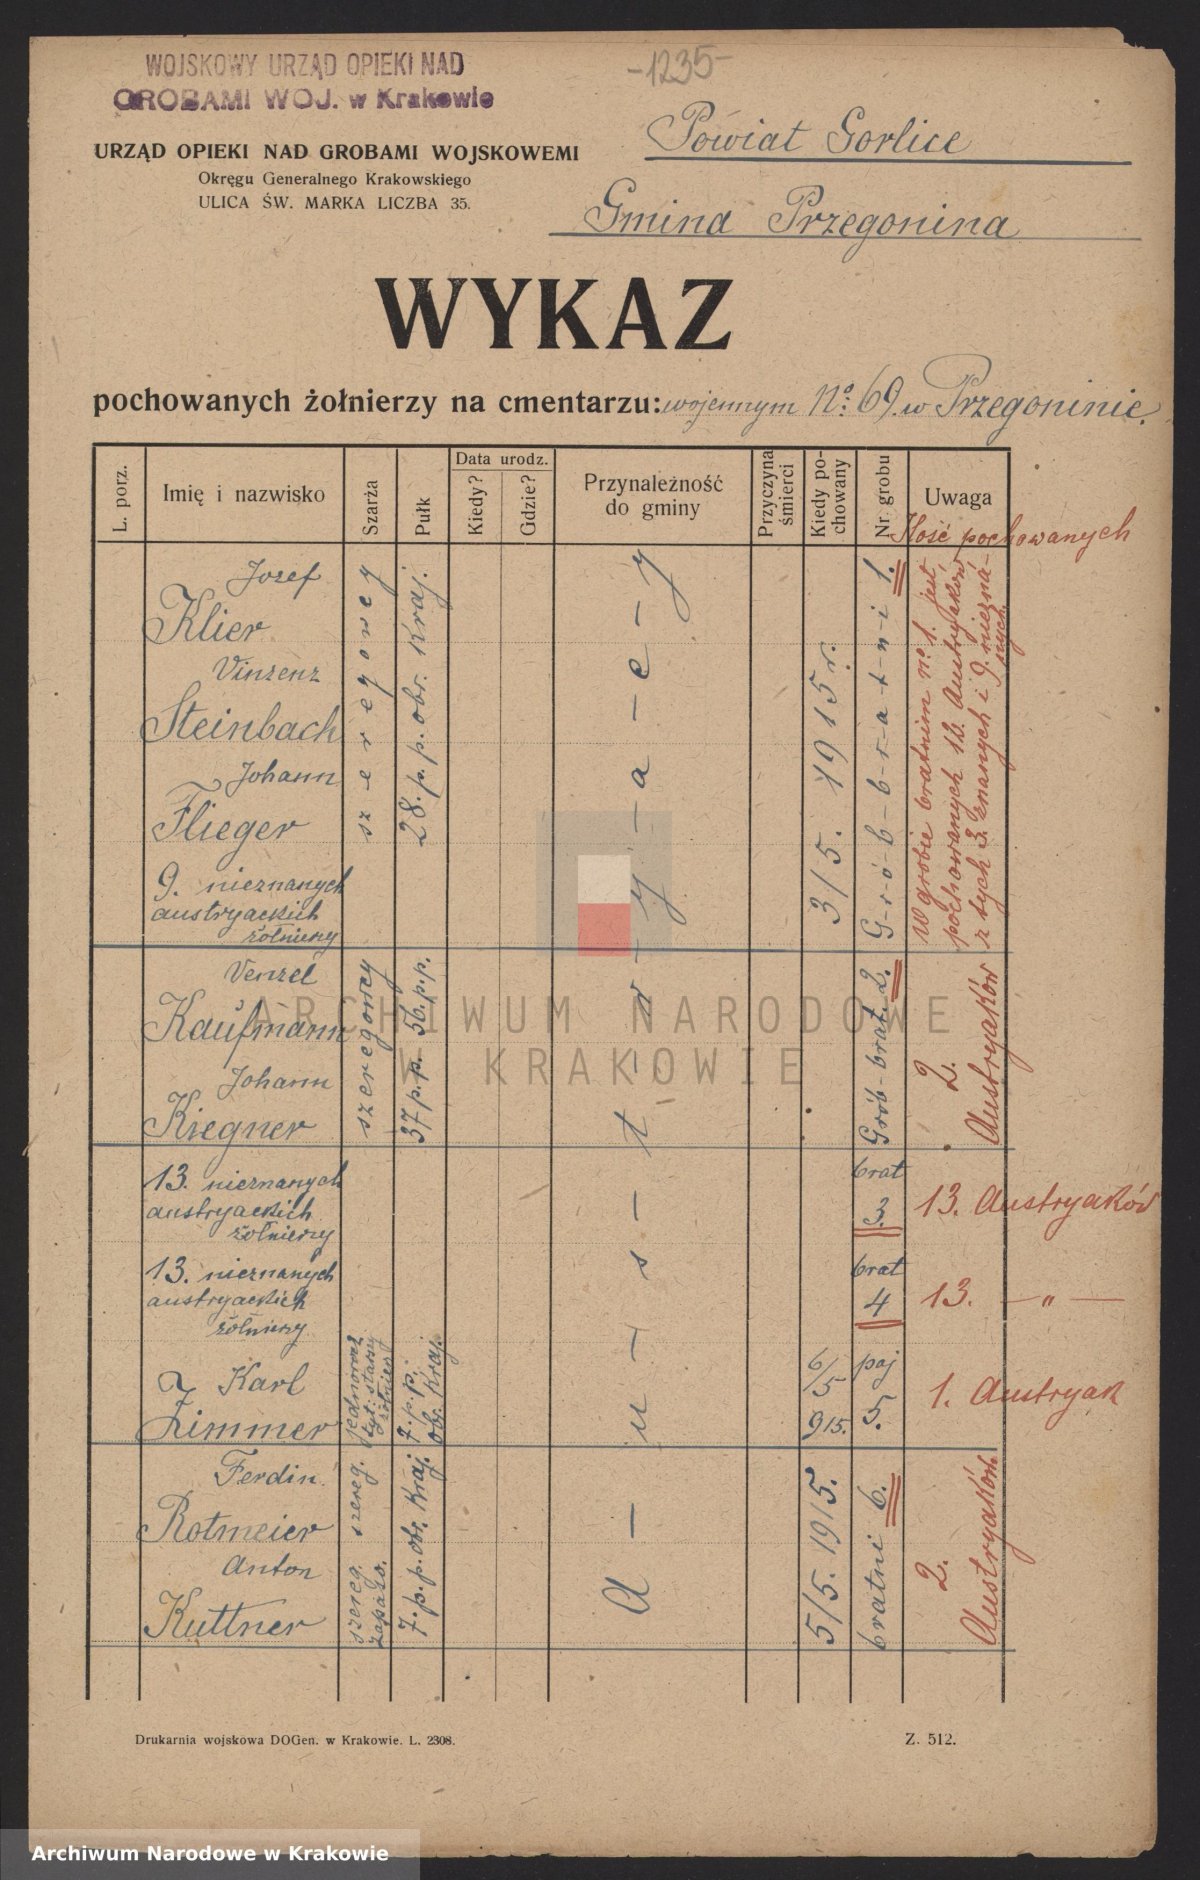 WOJSKOWY URZĄD OPIEKI NAD
GROBAMI WOJ. w Krakowie
-1235-
URZĄD OPIEKI NAD GROBAMI WOJSKOWEMI
Okręgu Generalnego Krakowskiego
ULICA ŚW. MARKA LICZBA 35.
Powiat Gorlice
Gmina Przegonina
WYKAZ
pochowanych żołnierzy na cmentarzu: wojennym No: 69. w Przegoninie.
L. porz.
Imię i nazwisko
Szarża
Pułk
Data urodz.
Kiedy?
Gdzie?
Przynależność
do gminy
Przyczyna
śmierci
Kiedy po-
chowany
Nr. grobu
Uwaga
Ilość pochowanych
Jozef
Klier
Vinzenz
Steinbach
Johann
Flieger
9. nieznanych
austryackich
żołnierzy
szeregowey
28. p. p. obr. Kraj.
3/5. 1915 r.
G-r-ó-b-b-r-a-t-n-i 1.
W grobie bratnim No. 1. jest
pochowanych 12. Austryaków
z tych 3. znanych i 9. niezna-
nych.
Venzel
Kaufmann
Johann
Kiegner
szeregowey
37 p.p. 56. p.p.
Grób-brat. 2.
2.
Austryaków
13. nieznanych
austryackich
żołnierzy
brat
3.
13. Austryaków
13. nieznanych
austryackich
żołnierzy
brat
4
13. — „ —
Karl
Zimmer
jednorocz
tyt. starszy
żołnierz
7. p. p.
obr. Kraj.
6/5
915.
poj
5.
1. Austryak
Ferdin.
Rotmeier
Anton
Kuttner
szereg.
szereg.
zapaso.
7. p. p. obr. Kraj.
5/5. 1915.
bratni 6.
2.
Austryaków.
A-u-s-t-r-y-a-c-y
Drukarnia wojskowa DOGen. w Krakowie. L. 2308.
Z. 512.
ARCHIWUM NARODOWE
W KRAKOWIE
Archiwum Narodowe w Krakowie